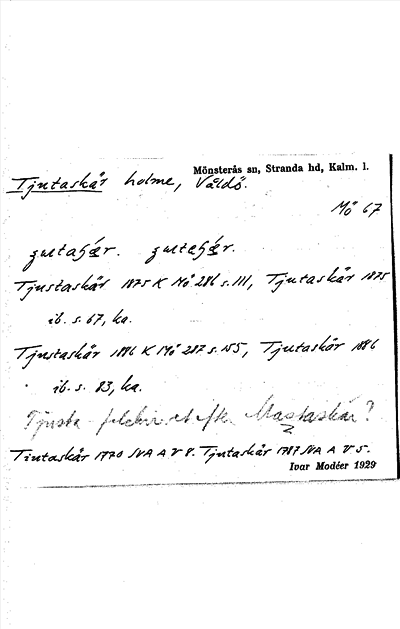 Mönsterås sn, Stranda hd, Kalm. l.
Tjutaskär holme, Våldö.
Mö 67
Tjustaskär 1875 K Mö 286 s. 111, Tjutaskär 1875
ib. s. 67, ka.
Tjustaskär 1886 K Mö 287 s. 155, Tjutaskär 1886
ib. s. 83, ka.
Tjusta- efter Mastaskär?
Tintaskär 1770 SVA A V 8. Tjutaskär 1787 SVA A V 5.
Ivar Modéer 1929